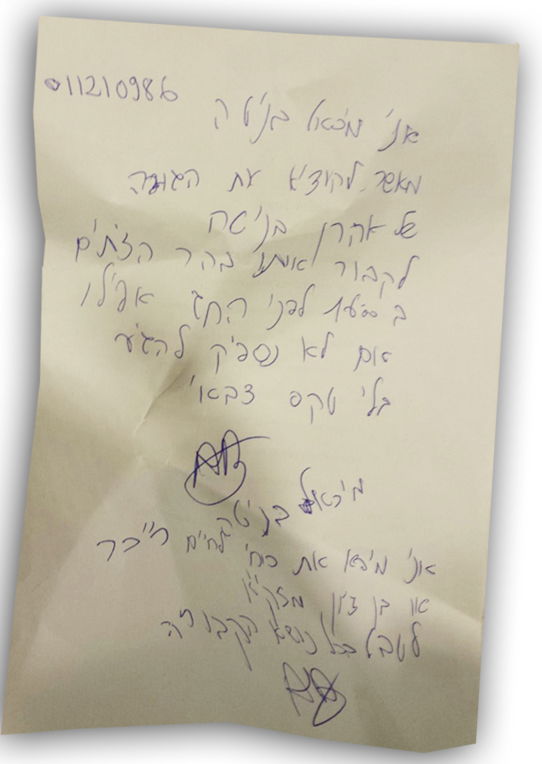 011210986
אני מיכאל בניטה
מאשר להוציא את הגופה
של אהרן בניטה
לקבור אותו בהר הזיתים
ב לפני החג אפילו
אם לא נספיק להגיע
בלי טקס צבאי
מיכאל בניטה
אני מיפא את כחי לחיים
או בן ציון מזק״א
לטפל בכל נושא הקבורה